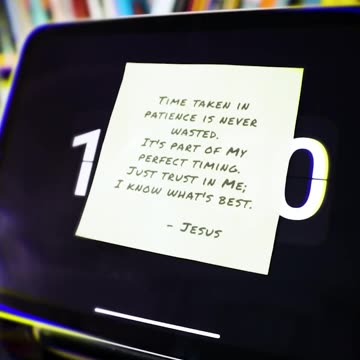 Time taken in
patience is never
wasted.
It's part of My
perfect timing.
Just trust in Me;
I know what's best.
- Jesus
1
0